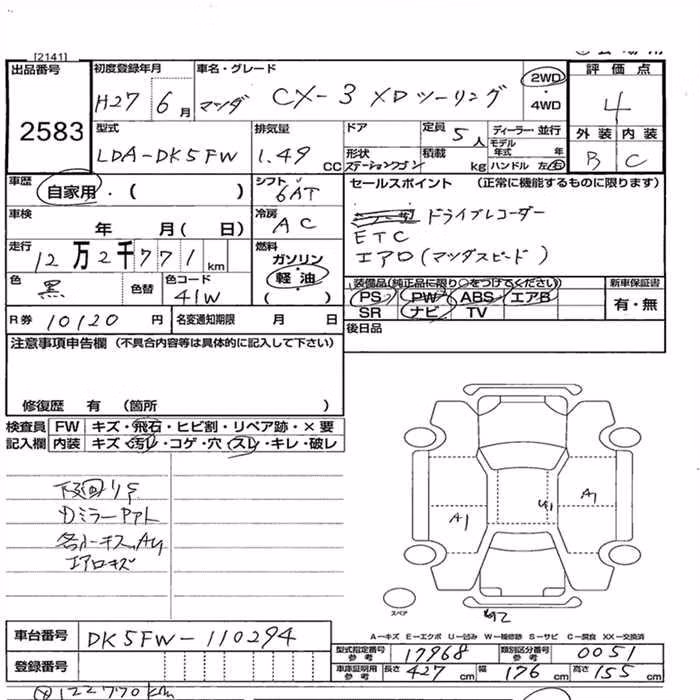 [2141]
出品番号 初度登録年月 車名・グレード 2WD・4WD 評価点
2583 H27 6月 マツダ CX-3 XDツーリング 4
型式 排気量 ドア 定員 5人 ディーラー・並行 外装 内装
LDA-DK5FW 1.49 CC 形状 ステーションワゴン 積載 kg モデル年式 年 ハンドル 左・右 B C
車歴 自家用・( ) シフト 6AT セールスポイント (正常に機能するものに限ります)
車検 年 月( 日) 冷房 AC ドライブレコーダー
ETC
走行 12万2千771km 燃料 ガソリン 軽・油 ( ) エアロ(マツダスピード)
色 黒 色替 色コード 41W 装備品(純正品に限り○をつけてください) 新車保証書
PS PW ABS エアB 有・無
R券 10120円 名変通知期限 月 日 SR ナビ TV
後日品
注意事項申告欄 (不具合内容等は具体的に記入して下さい)
修復歴 有 (箇所 )
検査員 FW キズ・飛石・ヒビ割・リペア跡・×要
記入欄 内装 キズ・汚レ・コゲ・穴・スレ・キレ・破レ
下回りS
DミラーPアル
各小キズ,AU
エアロキズ
A1
U1
A1
スペア
W2
A-キズ E-エクボ U-凹み W-補修跡 S-サビ C-腐食 XX-交換済
車台番号 DK5FW-110294
登録番号
型式指定番号 参考 17968 類別区分番号 参考 0051
車庫証明用 参考 長さ 427cm 幅 176cm 高さ 155cm
122770km